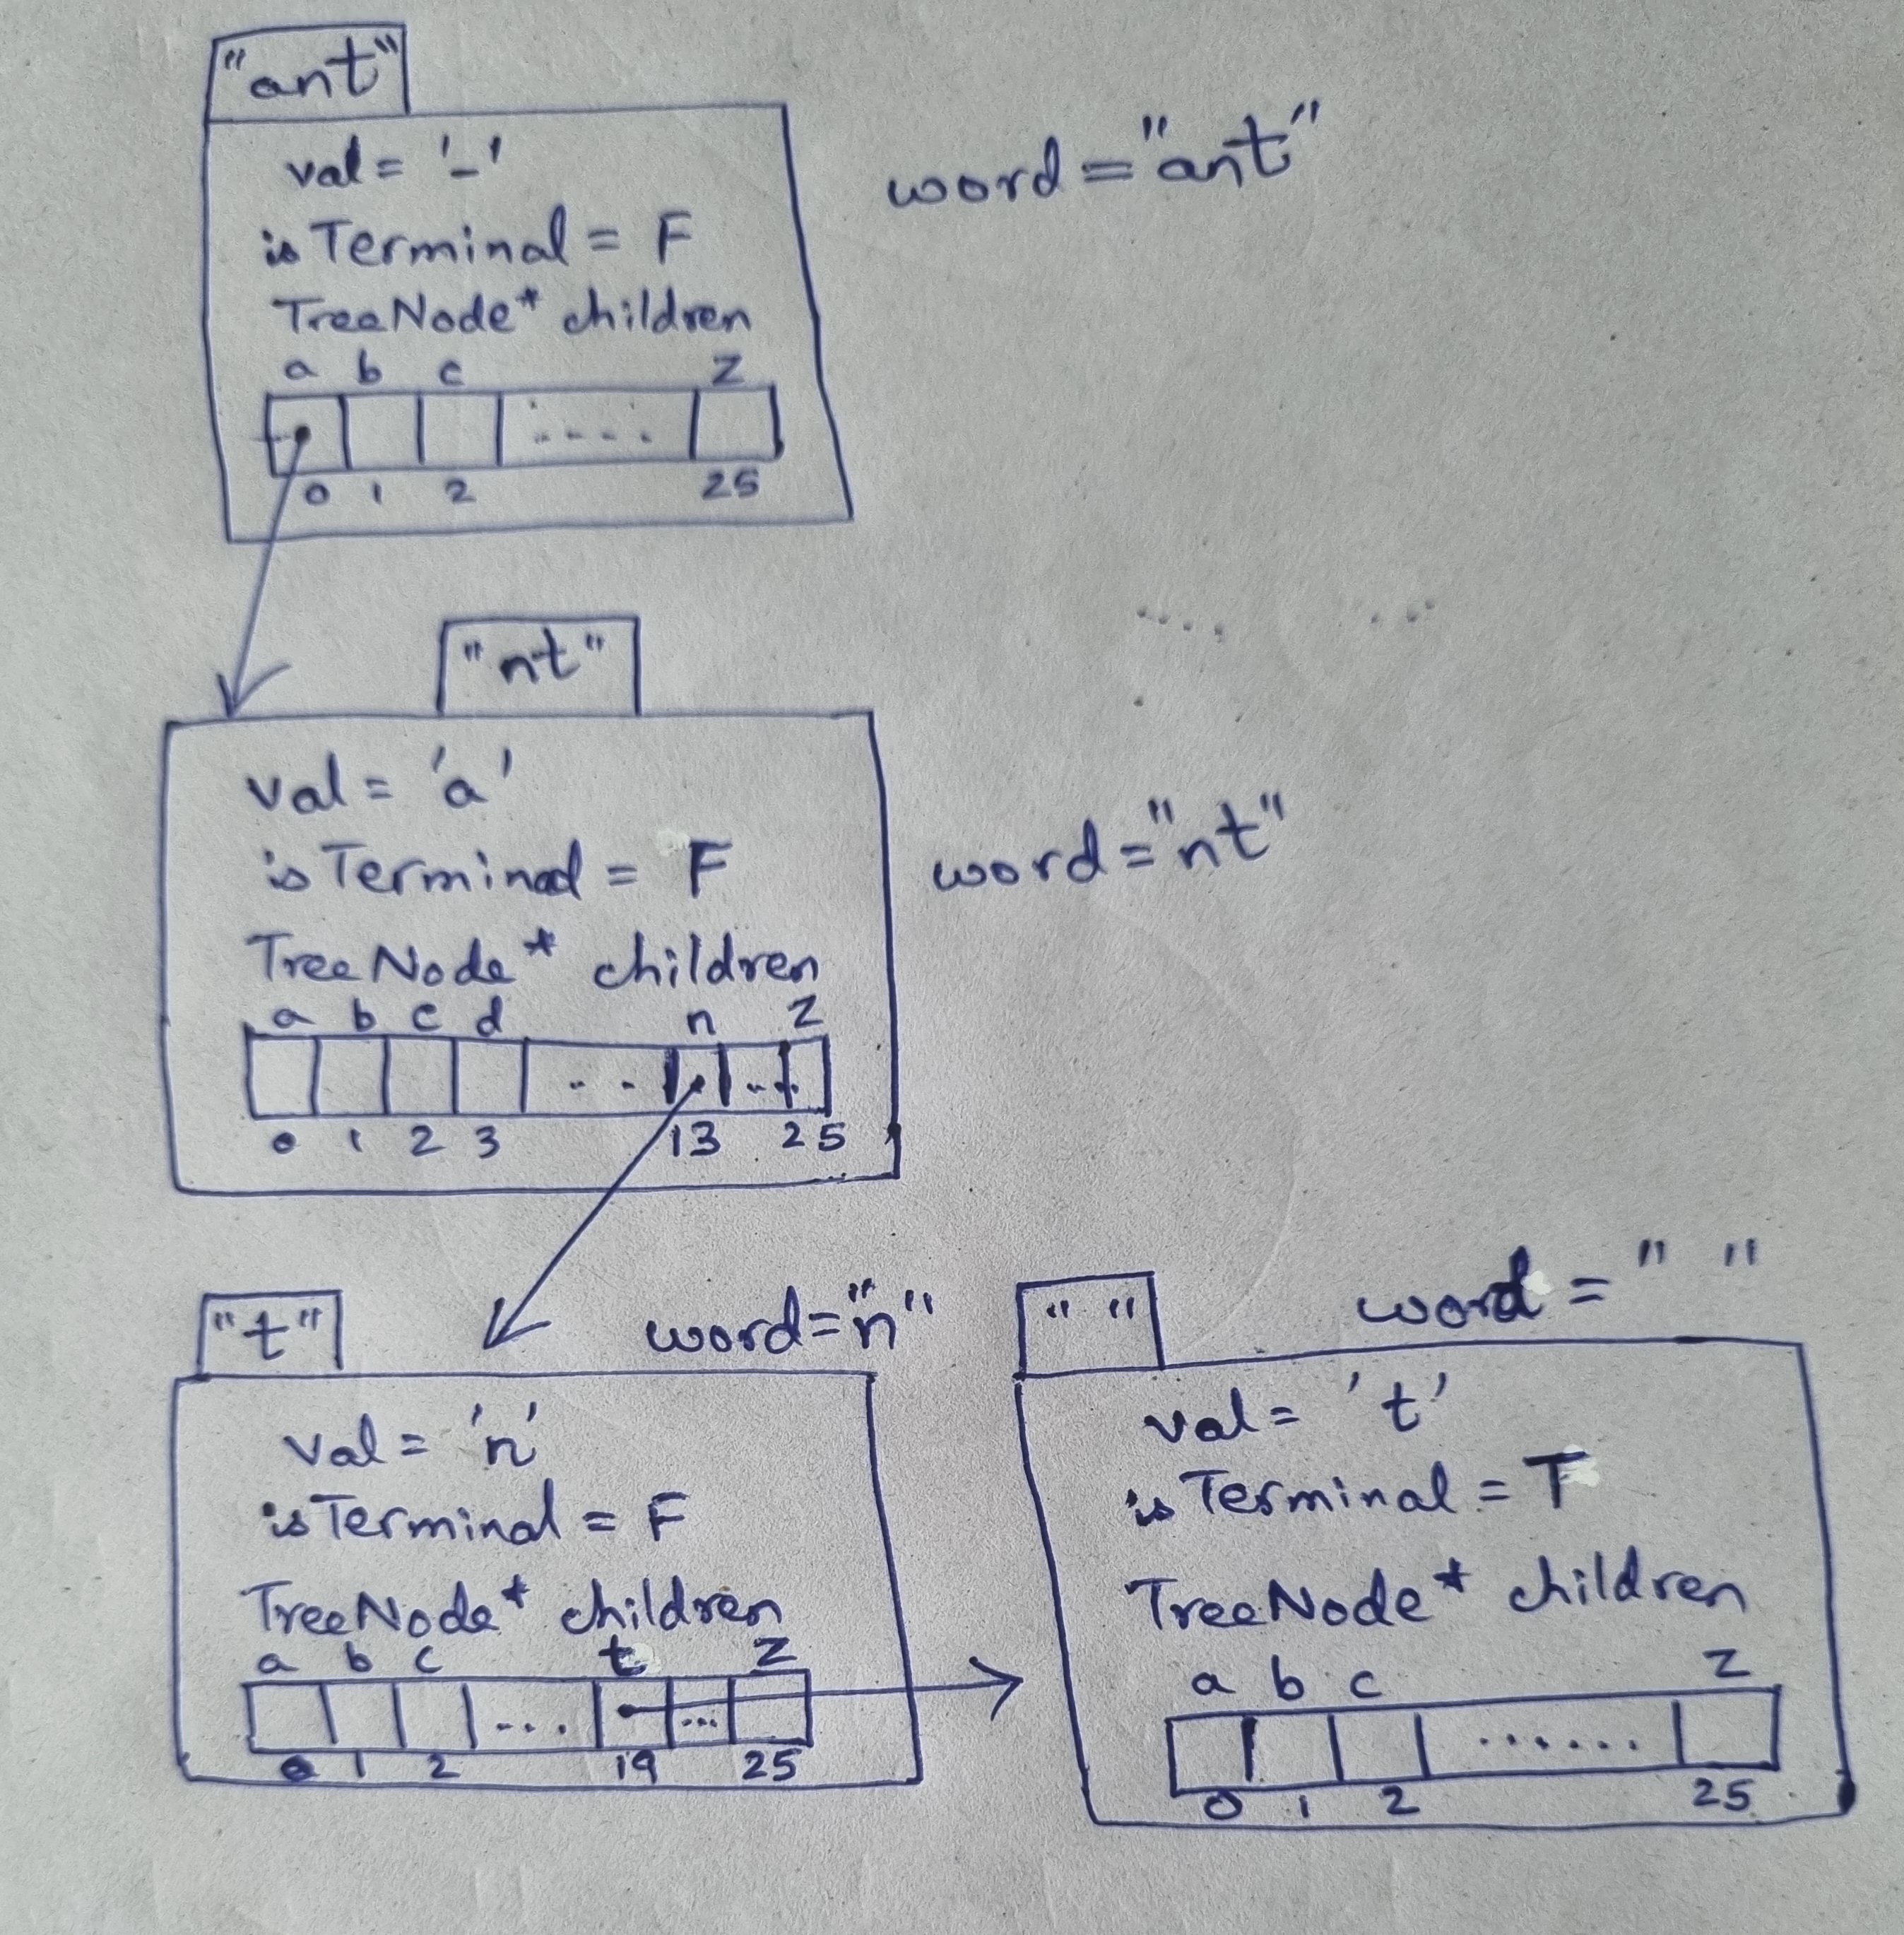 "ant"
val = '-'
word = "ant"
is Terminal = F
TreeNode* children
a b c z
0 1 2 25
"nt"
val = 'a'
is Terminal = F
word = "nt"
TreeNode* children
a b c d n z
0 1 2 3 13 25
"t"
word = "n"
val = 'n'
is Terminal = F
TreeNode* children
a b c .... t ... z
0 1 2 19 25
" "
word = " "
val = 't'
is Terminal = T
TreeNode* children
a b c z
.......
0 1 2 25